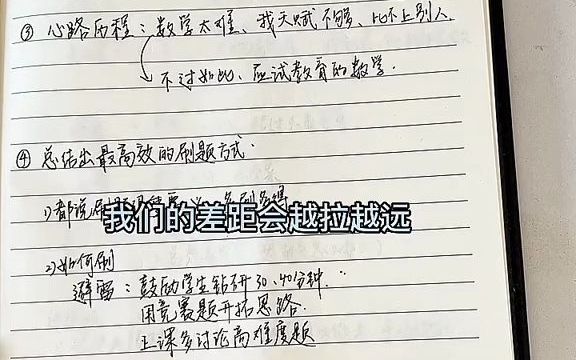 ③ 心路历程：数学太难、我天赋不够、比不上别人.
不过如此、应试教育的数学.
④ 总结出最高效的刷题方式.
1) 都说刷题
我们的差距会越拉越远
2) 如何刷
避雷：鼓励学生钻研30、40分钟.
用竞赛题开拓思路.
上课多讨论高难度题